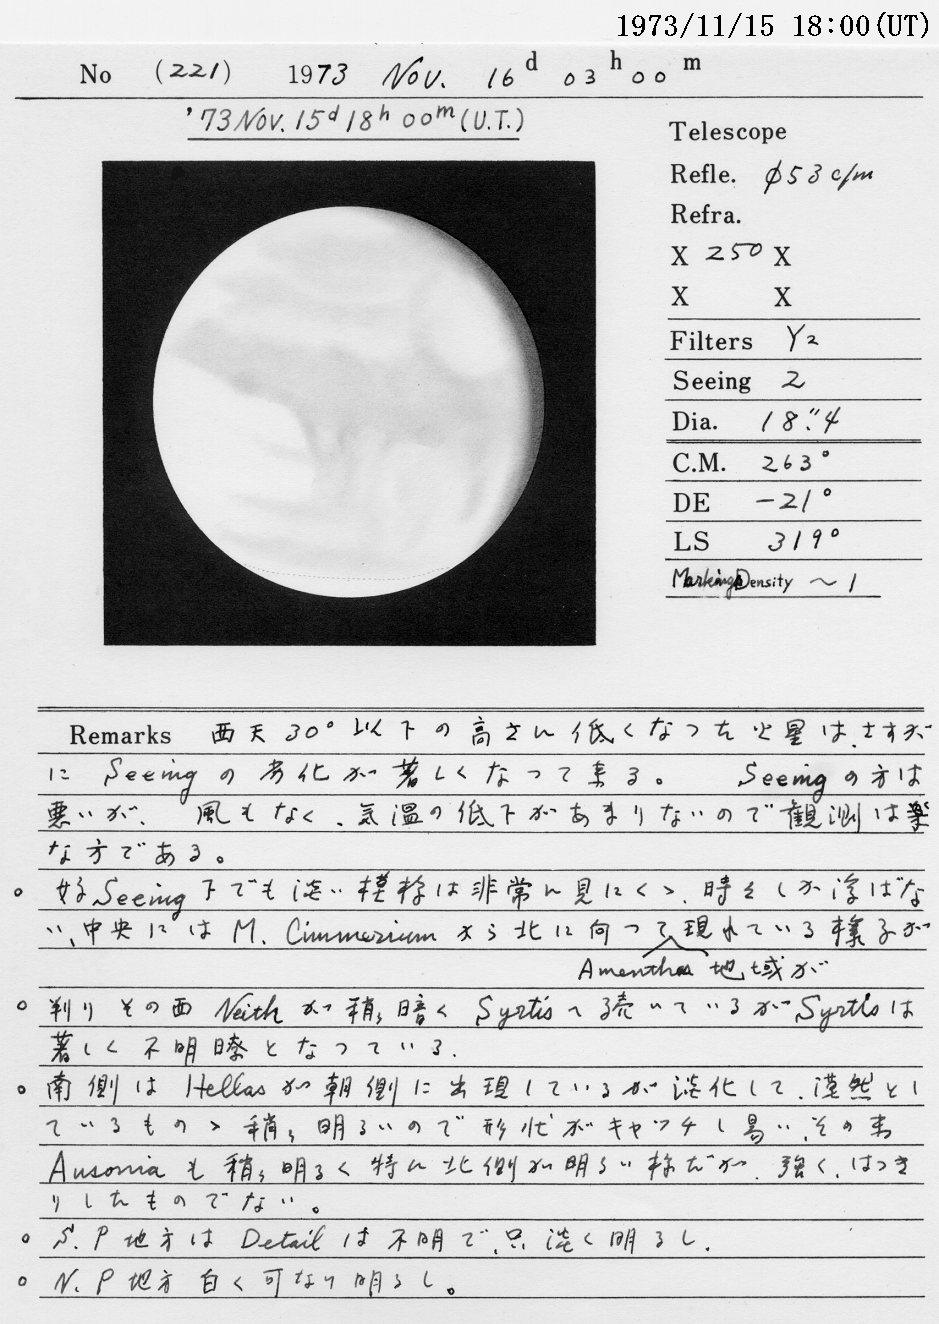 1973/11/15 18:00(UT)
No (221) 1973 Nov. 16d 03h 00m
'73 Nov. 15d 18h 00m (U.T.)
Telescope
Refle. φ53 c/m
Refra.
X 250 X
X X
Filters Y2
Seeing 2
Dia. 18".4
C.M. 263°
DE -21°
LS 319°
Markings Density ~1
Remarks 西天30°以下の高さに低くなった火星は、さすが
に Seeing の劣化が著しくなって来る。 Seeing の方は
悪いが、風もなく、気温の低下があまりないので観測は楽
な方である。
○ 好Seeing下でも淡い模様は非常に見にくゝ、時々しか浮ばな
い、中央には M. Cimmerium から北に向って現れている様子が
Amenthes 地域が
○ 判り その西 Neith が稍々暗く Syrtis へ続いているが Syrtis は
著しく不明瞭となっている.
○ 南側は Hellas が朝側に出現しているが淡化して、漠然とし
ているものゝ稍々明るいので形状がキャッチし易い、その東
Ausonia も稍々明るく特に北側が明るい様だが、強く、はっき
りしたものでない。
○ S.P地方は Detail は不明で、只、淡く明るし.
○ N.P地方 白く可なり明るし。